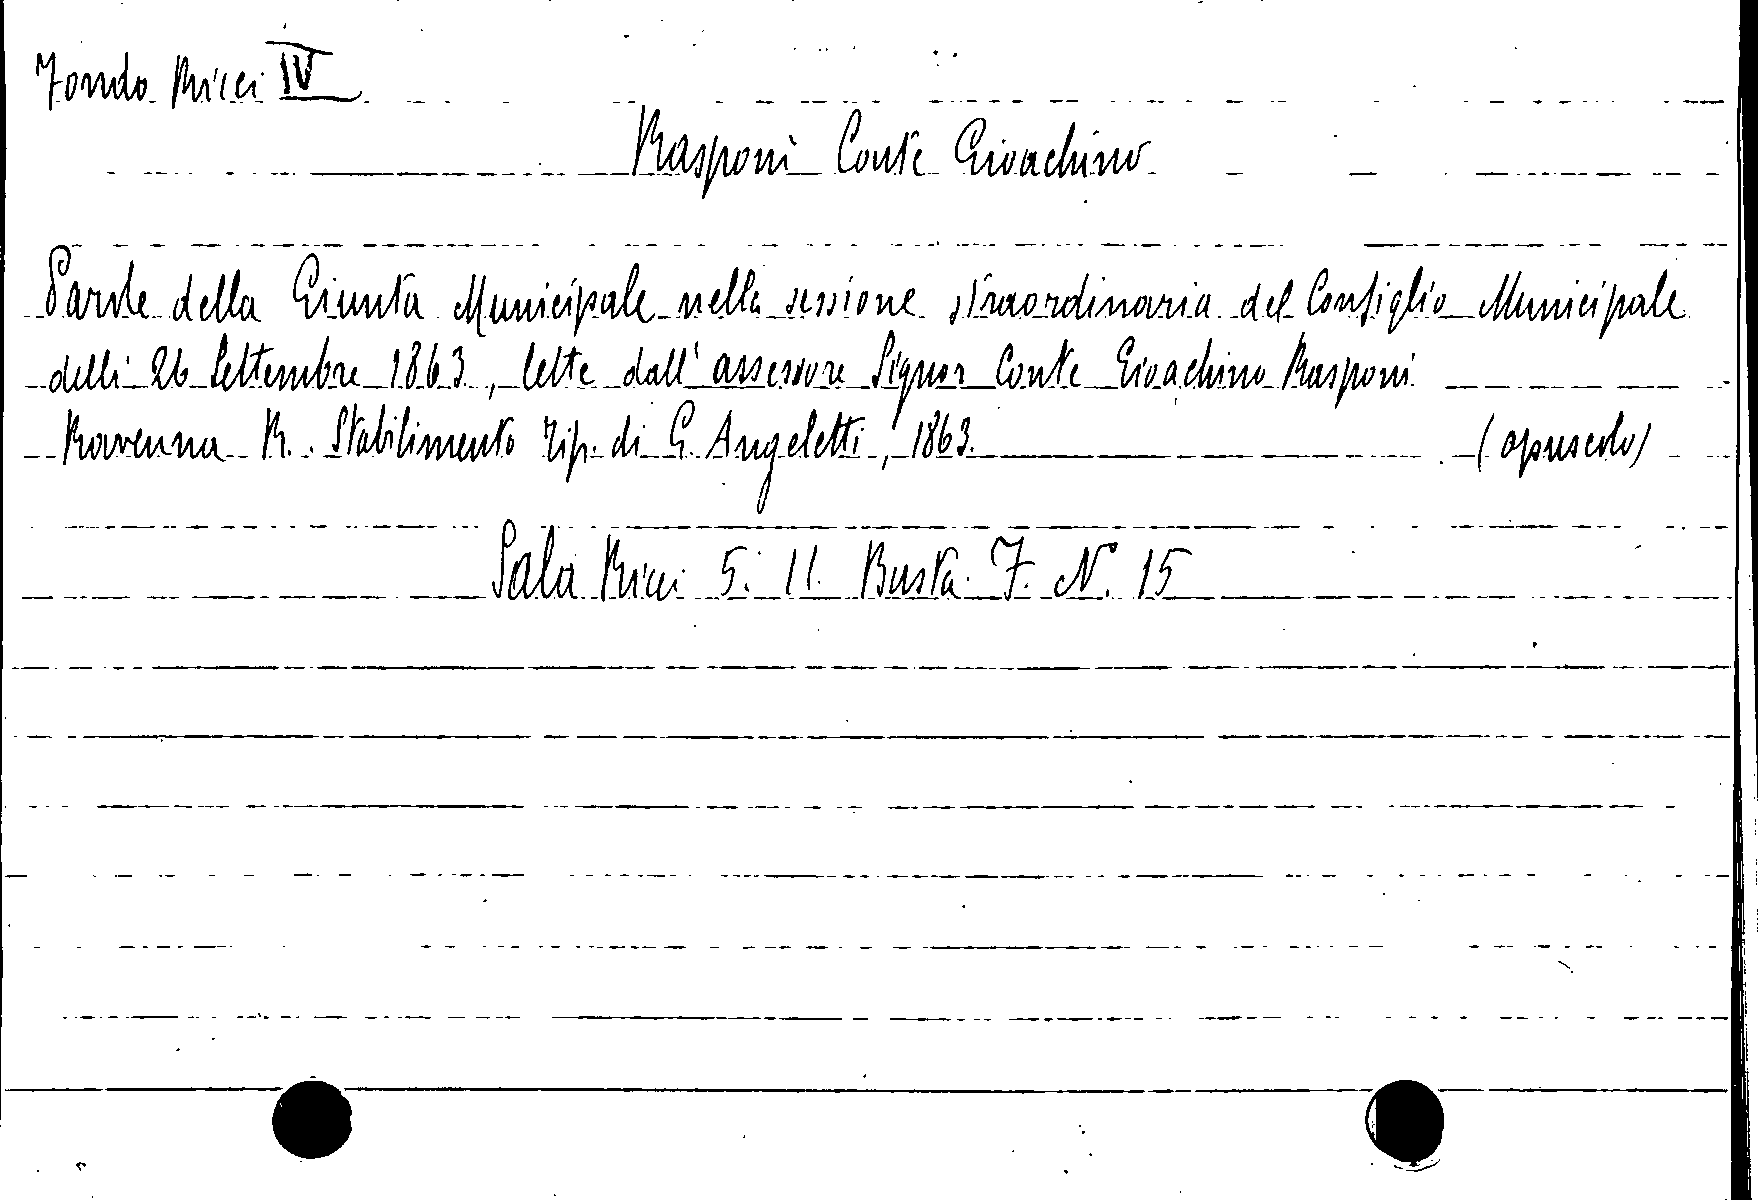 Fondo Ricci IV
Rasponi Conte Gioachino
Parole della Giunta Municipale nella sessione straordinaria del Consiglio Municipale
delli 26 Settembre 1863, lette dall'assessore Signor Conte Gioachino Rasponi
Ravenna R. Stabilimento Tip. di G. Angeletti, 1863. (opuscolo)
Sala Ricci 5. 11. Busta. 7. N. 15